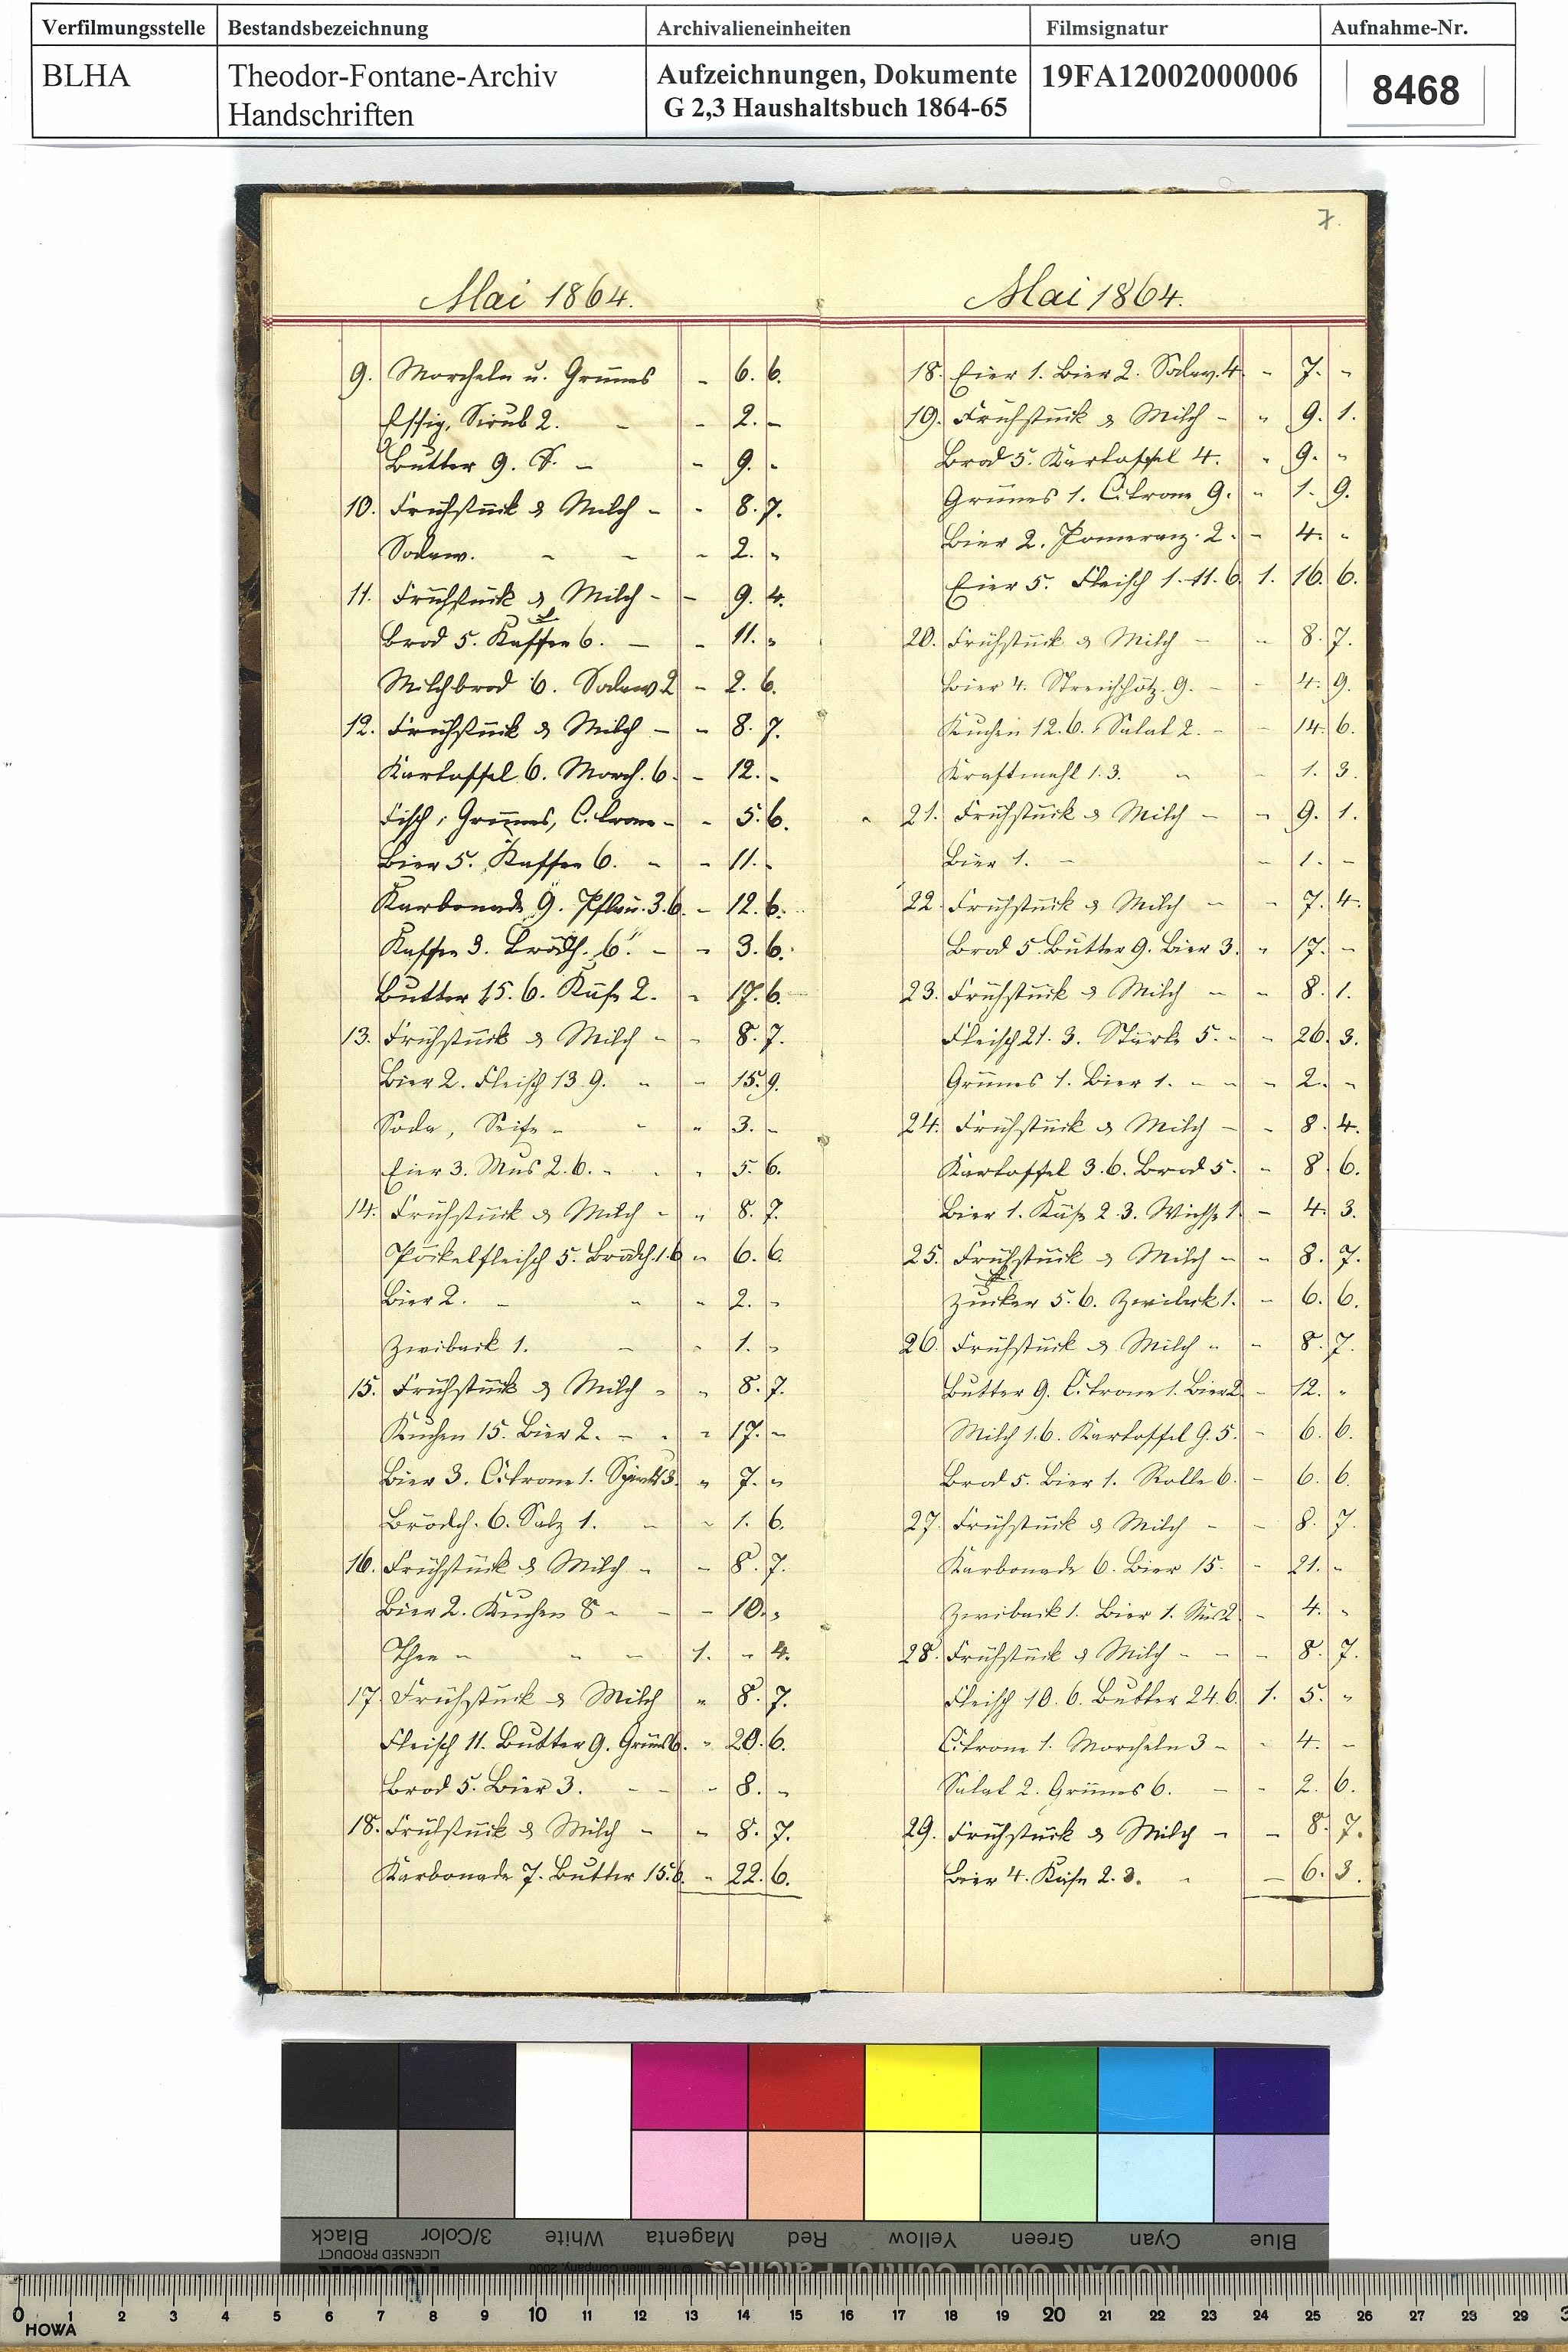 Verfilmungsstelle Bestandsbezeichnung Archivalieneinheiten Filmsignatur Aufnahme-Nr.
BLHA Theodor-Fontane-Archiv Handschriften Aufzeichnungen, Dokumente G 2,3 Haushaltsbuch 1864-65 19FA12002000006 8468
Mai 1864.
9. Morcheln u. Grünes - 6. 6.
Essig, Sirub 2. - - 2. -
Butter 9. S. - - 9. -
10. Frühstück & Milch - - 8. 7.
Sodaw. - - - 2. -
11. Frühstück & Milch - - 9. 4.
Brod 5. Kaffee 6. - - 11. -
Milchbrod 6. Sodaw 2 - 2. 6.
12. Frühstück & Milch - - 8. 7.
Kartoffel 6. Morch. 6. - 12. -
Fisch, Grünes, Citrone - - 5. 6.
Bier 5. Kaffee 6. - - 11. -
Karbonade 9. Pflau. 3.6. - 12. 6.
Kaffee 3. Brödch. 6. - - 3. 6.
Butter 15. 6. Käse 2. - 17. 6.
13. Frühstück & Milch - - 8. 7.
Bier 2. Fleisch 13 9. - - 15. 9.
Soda, Seife - - - 3. -
Eier 3. Mus 2. 6. - - - 5. 6.
14. Frühstück & Milch - - 8. 7.
Pöckelfleisch 5. Brödch. 1.6 - 6. 6.
Bier 2. - - - 2. -
Zwiback 1. - - 1. -
15. Frühstück & Milch - - 8. 7.
Kuchen 15. Bier 2. - - - 17. -
Bier 3. Citrone 1. 3. - 7. -
Brödch. 6. Salz 1. - - 1. 6.
16. Frühstück & Milch - - 8. 7.
Bier 2. Kuchen 8 - - - 10. -
Thee - - - 1. - 4.
17 Frühstück & Milch - 8. 7.
Fleisch 11. Butter 9. Grünes 6. - 20. 6.
Brod 5. Bier 3. - - - 8. -
18. Frühstück & Milch - - 8. 7.
Karbonade 7. Butter 15.6. - 22. 6.
7.
Mai 1864.
18. Eier 1. Bier 2. Sodaw. 4. - 7. -
19. Frühstück & Milch - - 9. 1.
Brod 5. Kartoffel 4. - 9. -
Grünes 1. Citrone 9. - 1. 9.
Bier 2. Pomeranz. 2. - 4. -
Eier 5. Fleisch 1. 11. 6. 1. 16. 6.
20. Frühstück & Milch - - 8. 7.
Bier 4. Streichhötz. 9. - - 4. 9.
Kuchen 12. 6. Salat 2. - - 14. 6.
Kraftmehl 1. 3. - - 1. 3.
21. Frühstück & Milch - - 9. 1.
Bier 1. - - 1. -
22. Frühstück & Milch - - 7. 4.
Brod 5. Butter 9. Bier 3. - 17. -
23. Frühstück & Milch - - 8. 1.
Fleisch 21. 3. Stärke 5. - - 26. 3.
Grünes 1. Bier 1. - - - 2. -
24. Frühstück & Milch - - 8. 4.
Kartoffel 3. 6. Brod 5. - 8. 6.
Bier 1. Käse 2. 3. Wichse 1. - 4. 3.
25. Frühstück & Milch - - 8. 7.
Zucker 5. 6. Zwiback 1. - 6. 6.
26. Frühstück & Milch - - 8. 7.
Butter 9. Citrone 1. Bier 2. - 12. -
Milch 1. 6. Kartoffel 9. 5. - 6. 6.
Brod 5. Bier 1. Rolle 6. - 6. 6.
27. Frühstück & Milch - - 8. 7.
Karbonade 6. Bier 15. - 21. -
Zwiback 1. Bier 1. Mus 2 - 4. -
28. Frühstück & Milch - - - 8. 7.
Fleisch 10. 6. Butter 24. 6. 1. 5. -
Citrone 1. Morcheln 3 - - 4. -
Salat 2. Grünes 6. - - 2. 6.
29. Frühstück & Milch - - 8. 7.
Bier 4. Käse 2. 3. - - 6. 3.
Black 3/Color White Magenta Red Yellow Green Cyan Blue
LICENSED PRODUCT
0 1 2 3 4 5 6 7 8 9 10 11 12 13 14 15 16 17 18 19 20 21 22 23 24 25 26 27 28 29
HOWA